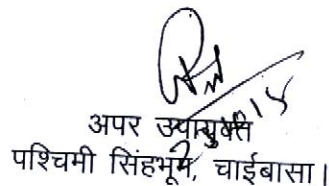 अपर उपायुक्त
पश्चिमी सिंहभूम, चाईबासा।